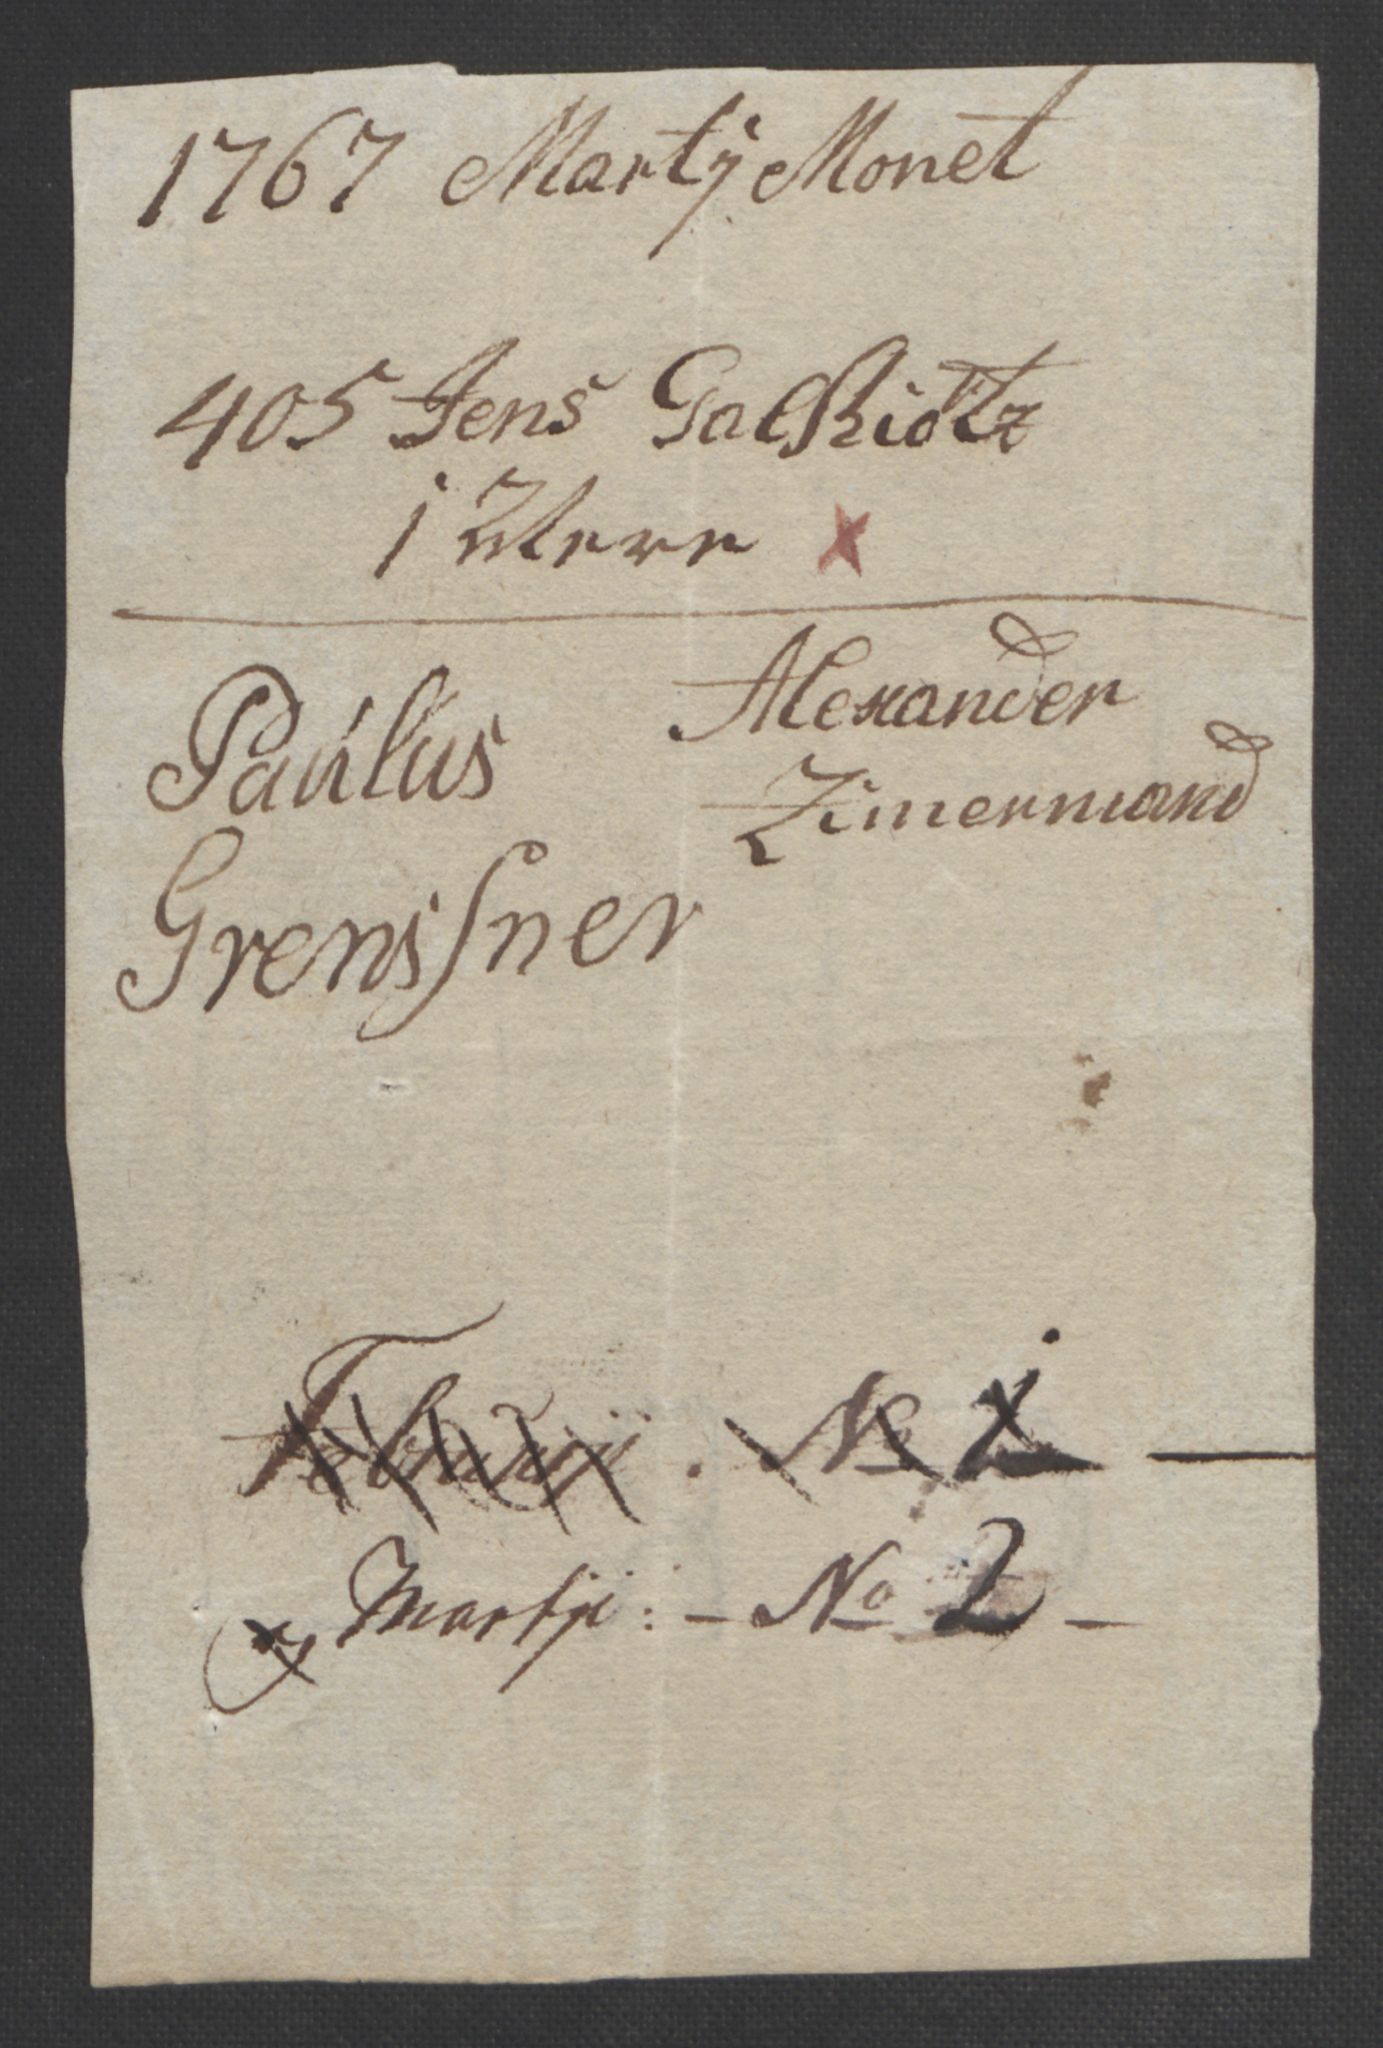 1767 Martij Monet
405 Jens Galskiötz
1 Mere x
Paulus
Grensner
Alexander
Zimermand
Februarij . No 1 —
Martji : – No 2 –